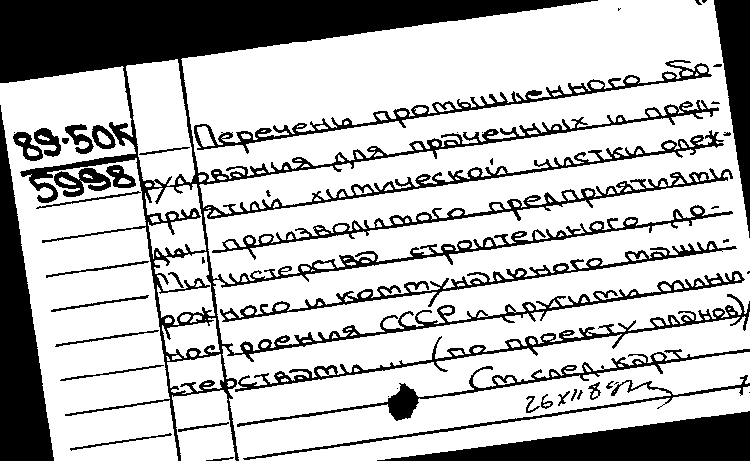 89-50К
5998
Перечень промышленного обо-
рудования для прачечных и пред-
приятий химической чистки одеж-
ды, производимого предприятиями
Министерства строительного, до-
рожного и коммунального маши-
ностроения СССР и другими мини-
стерствами... (по проекту планов)/
См. след. карт.